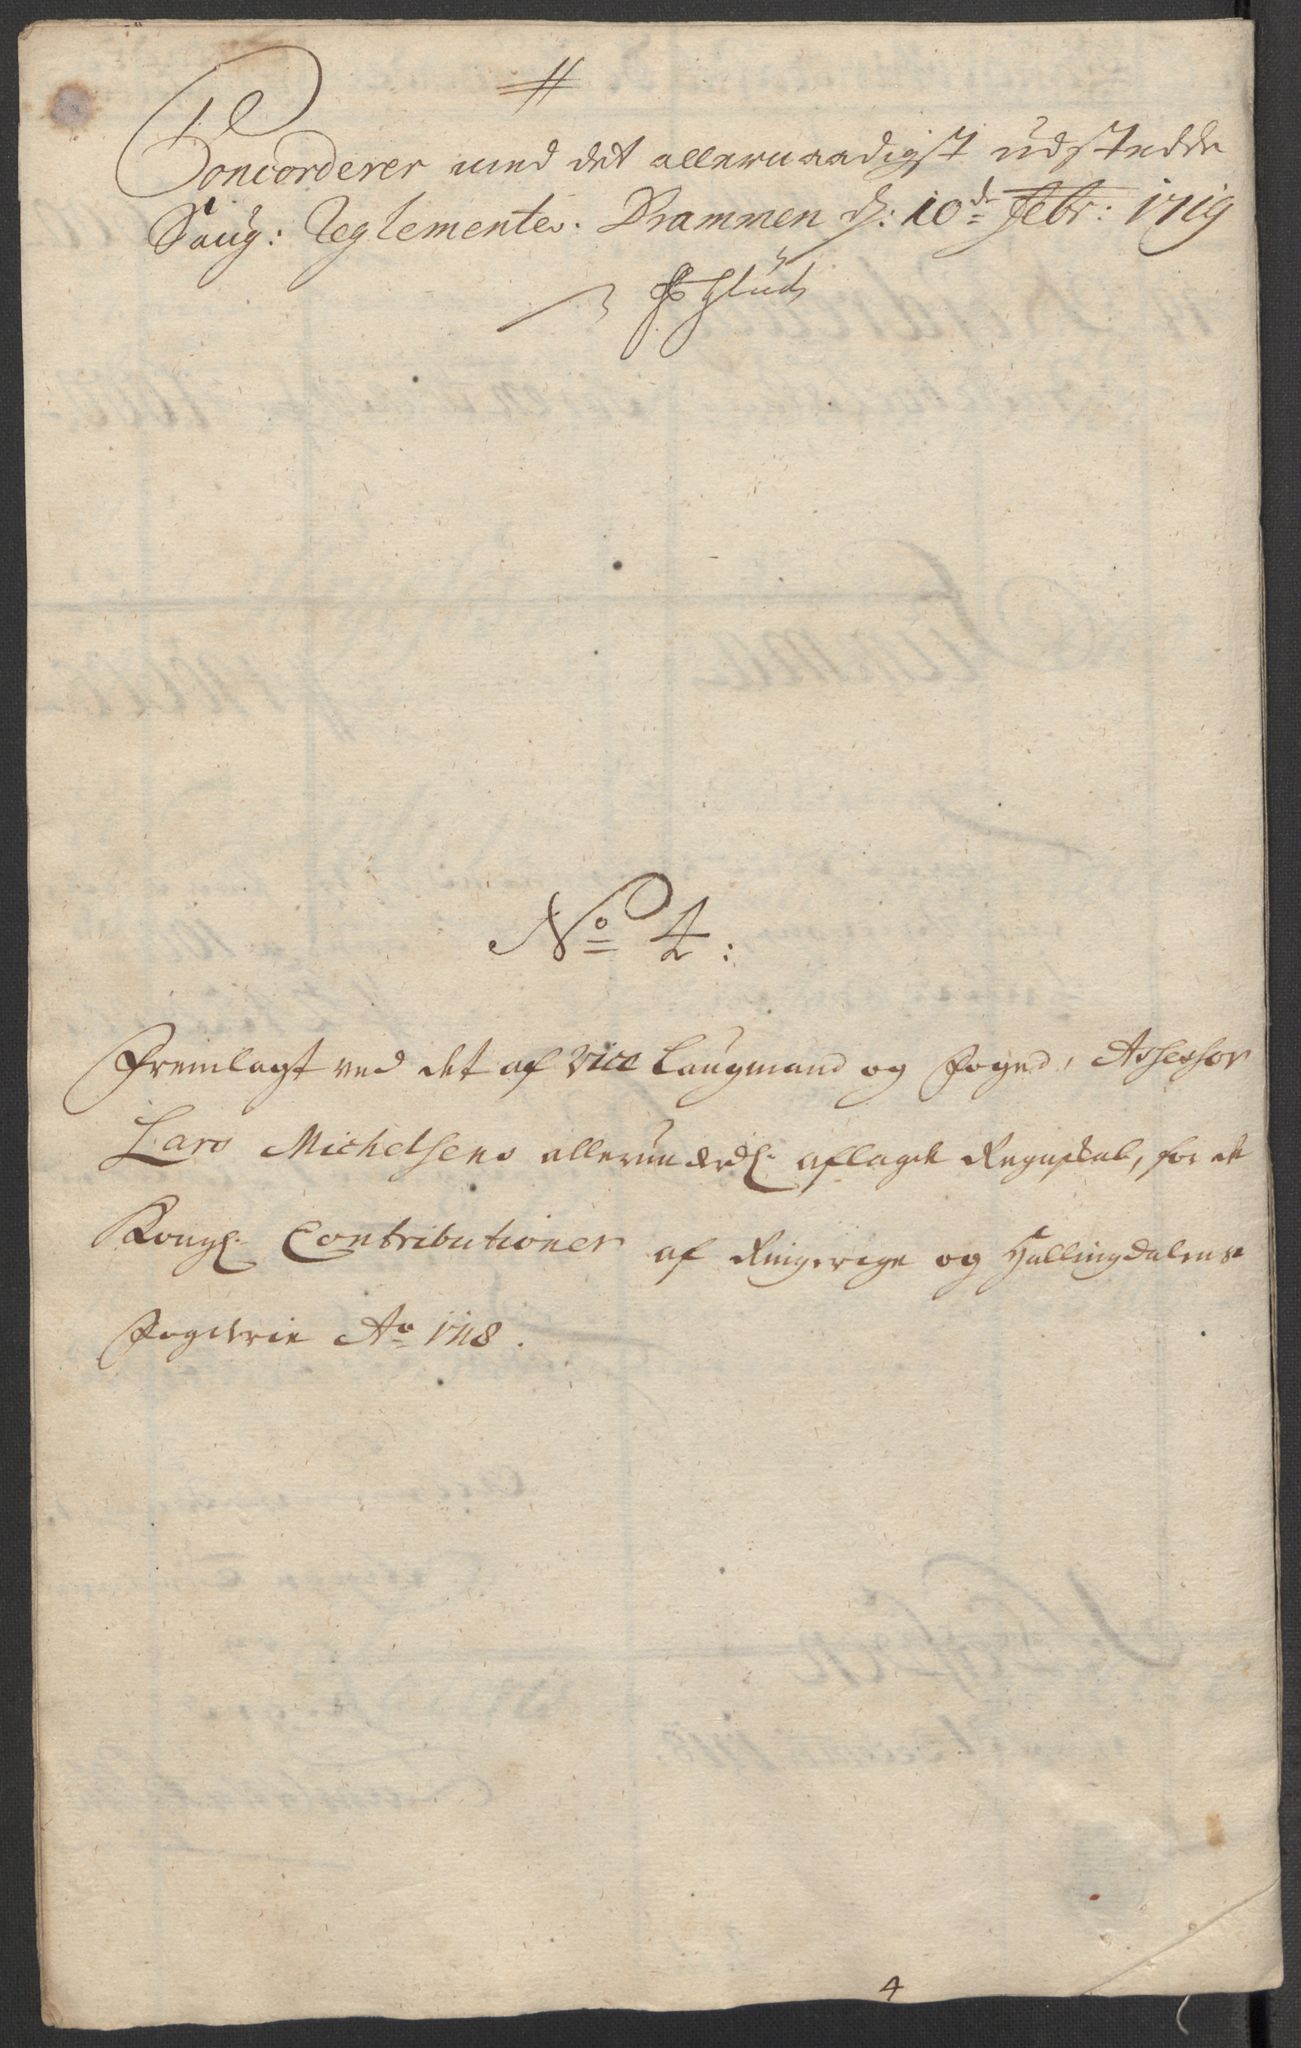 Concorderer med det allernaadigst udstedde
Saug: Reglementes. Drammen d: 10de Febr: 1719
No 4:
Fremlagt ved det af Vice Laugmand og Foged, Assessor
Lars Michelsens allerunderdl: aflagde Regnskab, for de
Kongl: Contributioner af Ringerige og Hallingdalens
Fogderie Ao 1718.
4